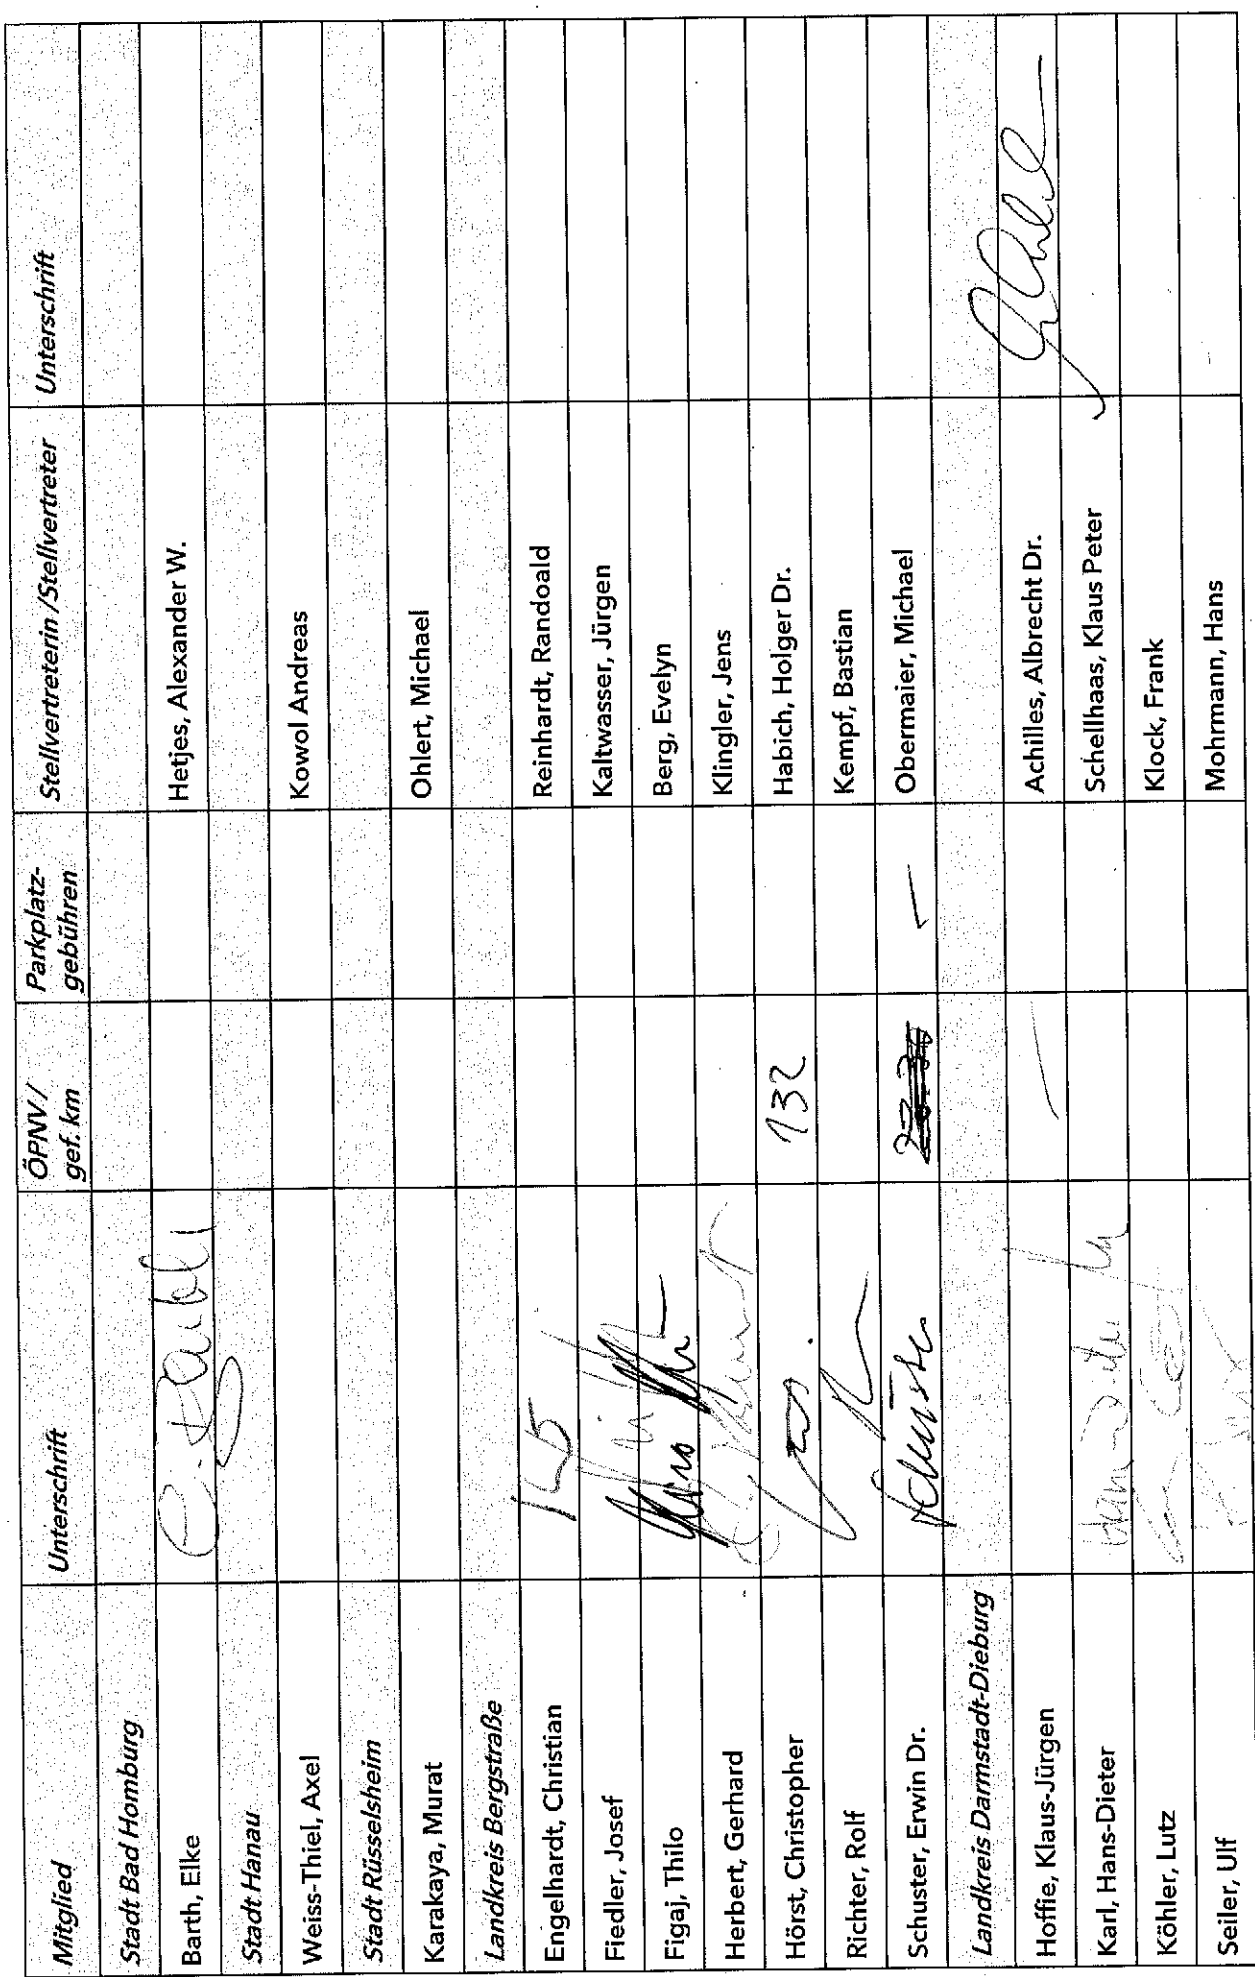 Mitglied Unterschrift ÖPNV / gef. km Parkplatz-gebühren Stellvertreterin /Stellvertreter Unterschrift
Stadt Bad Homburg
Barth, Elke Hetjes, Alexander W.
Stadt Hanau
Weiss-Thiel, Axel Kowol Andreas
Stadt Rüsselsheim
Karakaya, Murat Ohlert, Michael
Landkreis Bergstraße
Engelhardt, Christian Reinhardt, Randoald
Fiedler, Josef Kaltwasser, Jürgen
Figaj, Thilo Berg, Evelyn
Herbert, Gerhard Klingler, Jens
Hörst, Christopher 132 Habich, Holger Dr.
Richter, Rolf Kempf, Bastian
Schuster, Erwin Dr. Obermaier, Michael
Landkreis Darmstadt-Dieburg
Hoffie, Klaus-Jürgen Achilles, Albrecht Dr.
Karl, Hans-Dieter Schellhaas, Klaus Peter
Köhler, Lutz Klock, Frank
Seiler, Ulf Mohrmann, Hans